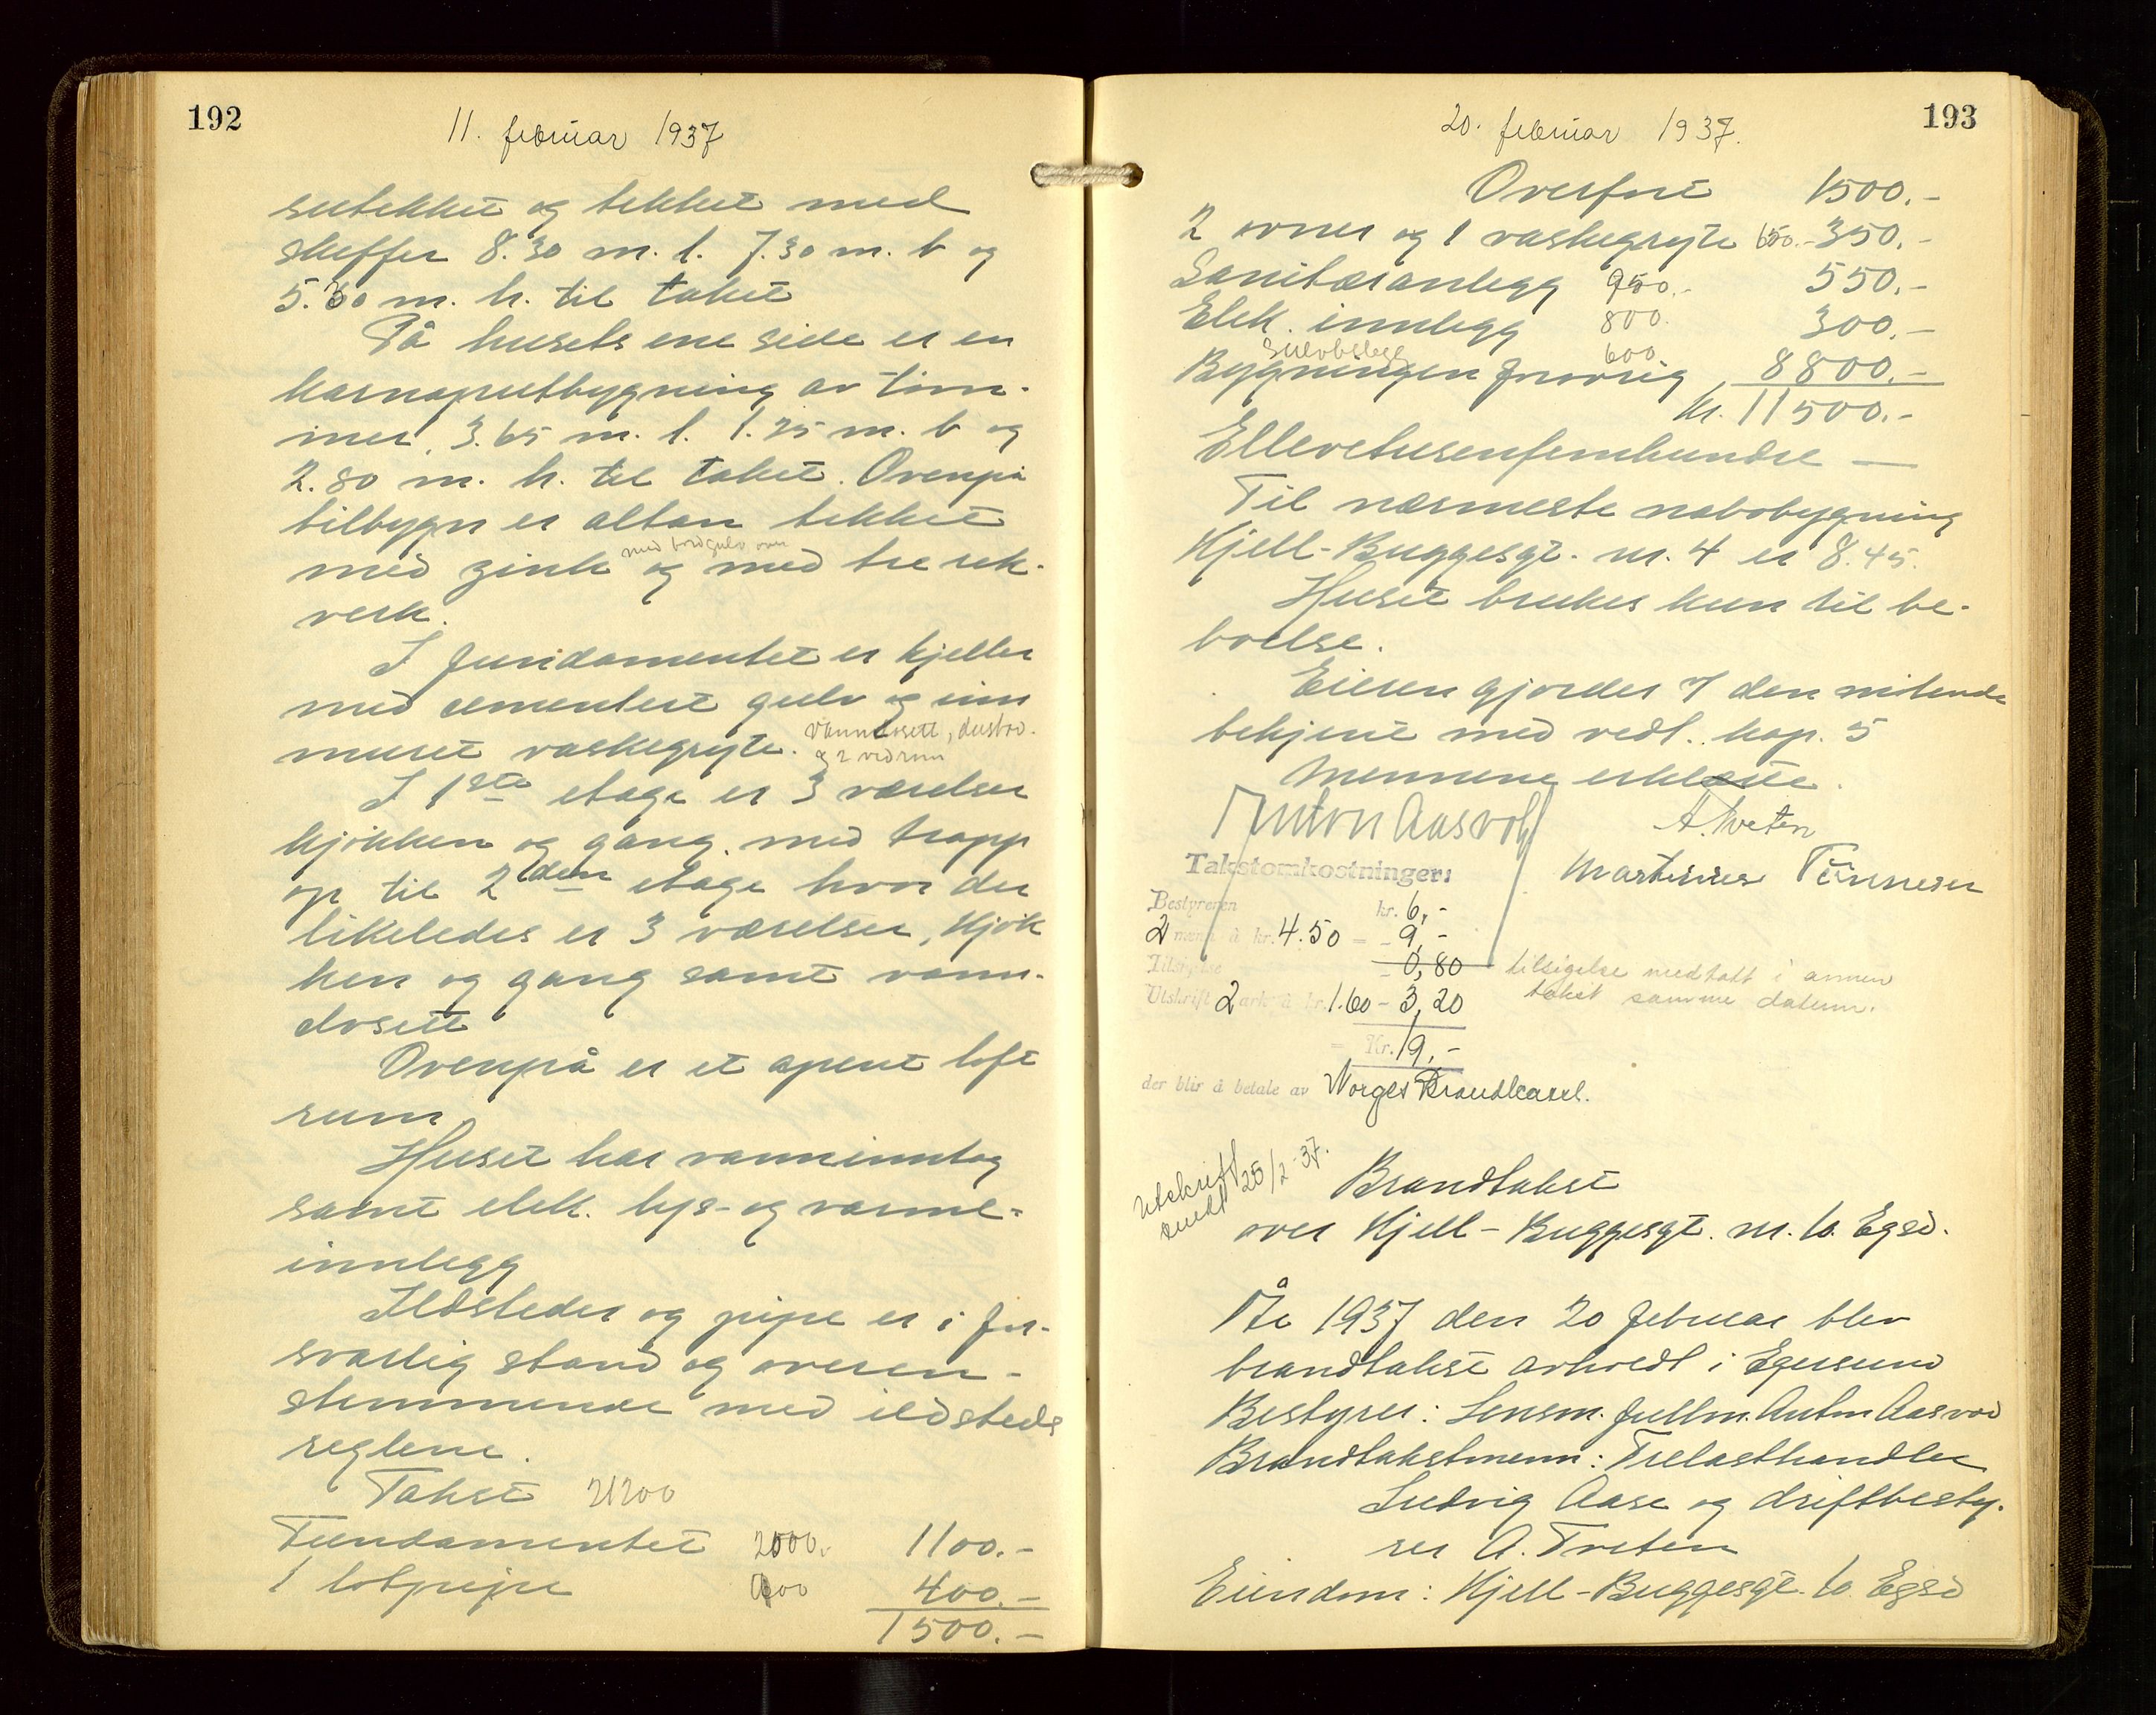 192
11. februar 1937
sutekket og tekket med
skeffer 8.30 m. l. 7.30 m. b og
5.30 m. h. til taket
På husets ene side er en
karnaputbygning av tøm-
mer, 3.65 m. l. 1.25 m. b og
2.80 m. h. til taket. Ovenpå
tilbygn er altan tekket
med bordgulv over
med zink og med tre rek-
verk.
I fundamentet er kjeller
med sementert gulv og inn
muret vaskegryte. vannklosett, dusbad.
og 2 vedrum
I 1ste etage er 3 værelser
kjøkken og gang, med trapp
op til 2den etage hvor der
likeledes er 3 værelser, kjøk
ken og gang samt vann-
closett
Ovenpå er et åpent loft
rum
Huset har vanninntag
samt elek. lys- og varme-
innlegg
Ildsteder og pipe er i for-
svarlig stand og overen-
stemmende med ildsteds
reglene.
Takst 21200
Fundamentet 2000.- 1100.-
1 løtpipe 900 400.-
1500.-
193
20. februar 1937.
Overført 1500.-
2 ovner og 1 vaskegryte 650.- 350.-
Sanitæranlegg 950.- 550.-
Elek. innlegg 800. 300.-
600
Bygningen forøvrig 8800.-
kr. 11500.-
Ellevetusenfemhundre —
Til nærmeste nabobygning
Kjell-Buggesgt. nr. 4 er 8.45.
Huset brukes kun til be-
boelse.
Eieren gjordes i den vitende
bekjent med vedt. kap. 5
Mennene erklærte.
Anton Aasvold A. Tveten
Takstomkostninger: Martinius Tønnesen
Bestyreren kr. 6,-
2 menn à kr. 4.50 = - 9,-
Tilsigelse - 0,80 tilsigelse medtatt i annen
Utskrift 2 ark à kr. 1.60 - 3,20 takst samme datum.
= Kr. 19,-
der blir å betale av Norges Brandkasse.
Utskrift
sendt 25/2-37.
Brandtakst
over Kjell-Buggesgt. nr. 6. Egsd.
År 1937 den 20 februar blev
brandtakst avholdt i Egersund
Bestyrer: Lensm. fullm. Anton Aasvod
Brandtakstmenn: Trelasthandler
Ludvig Aase og driftbesty-
rer A. Tveten
Eiendom: Kjell-Buggesgt. 6. Egsd